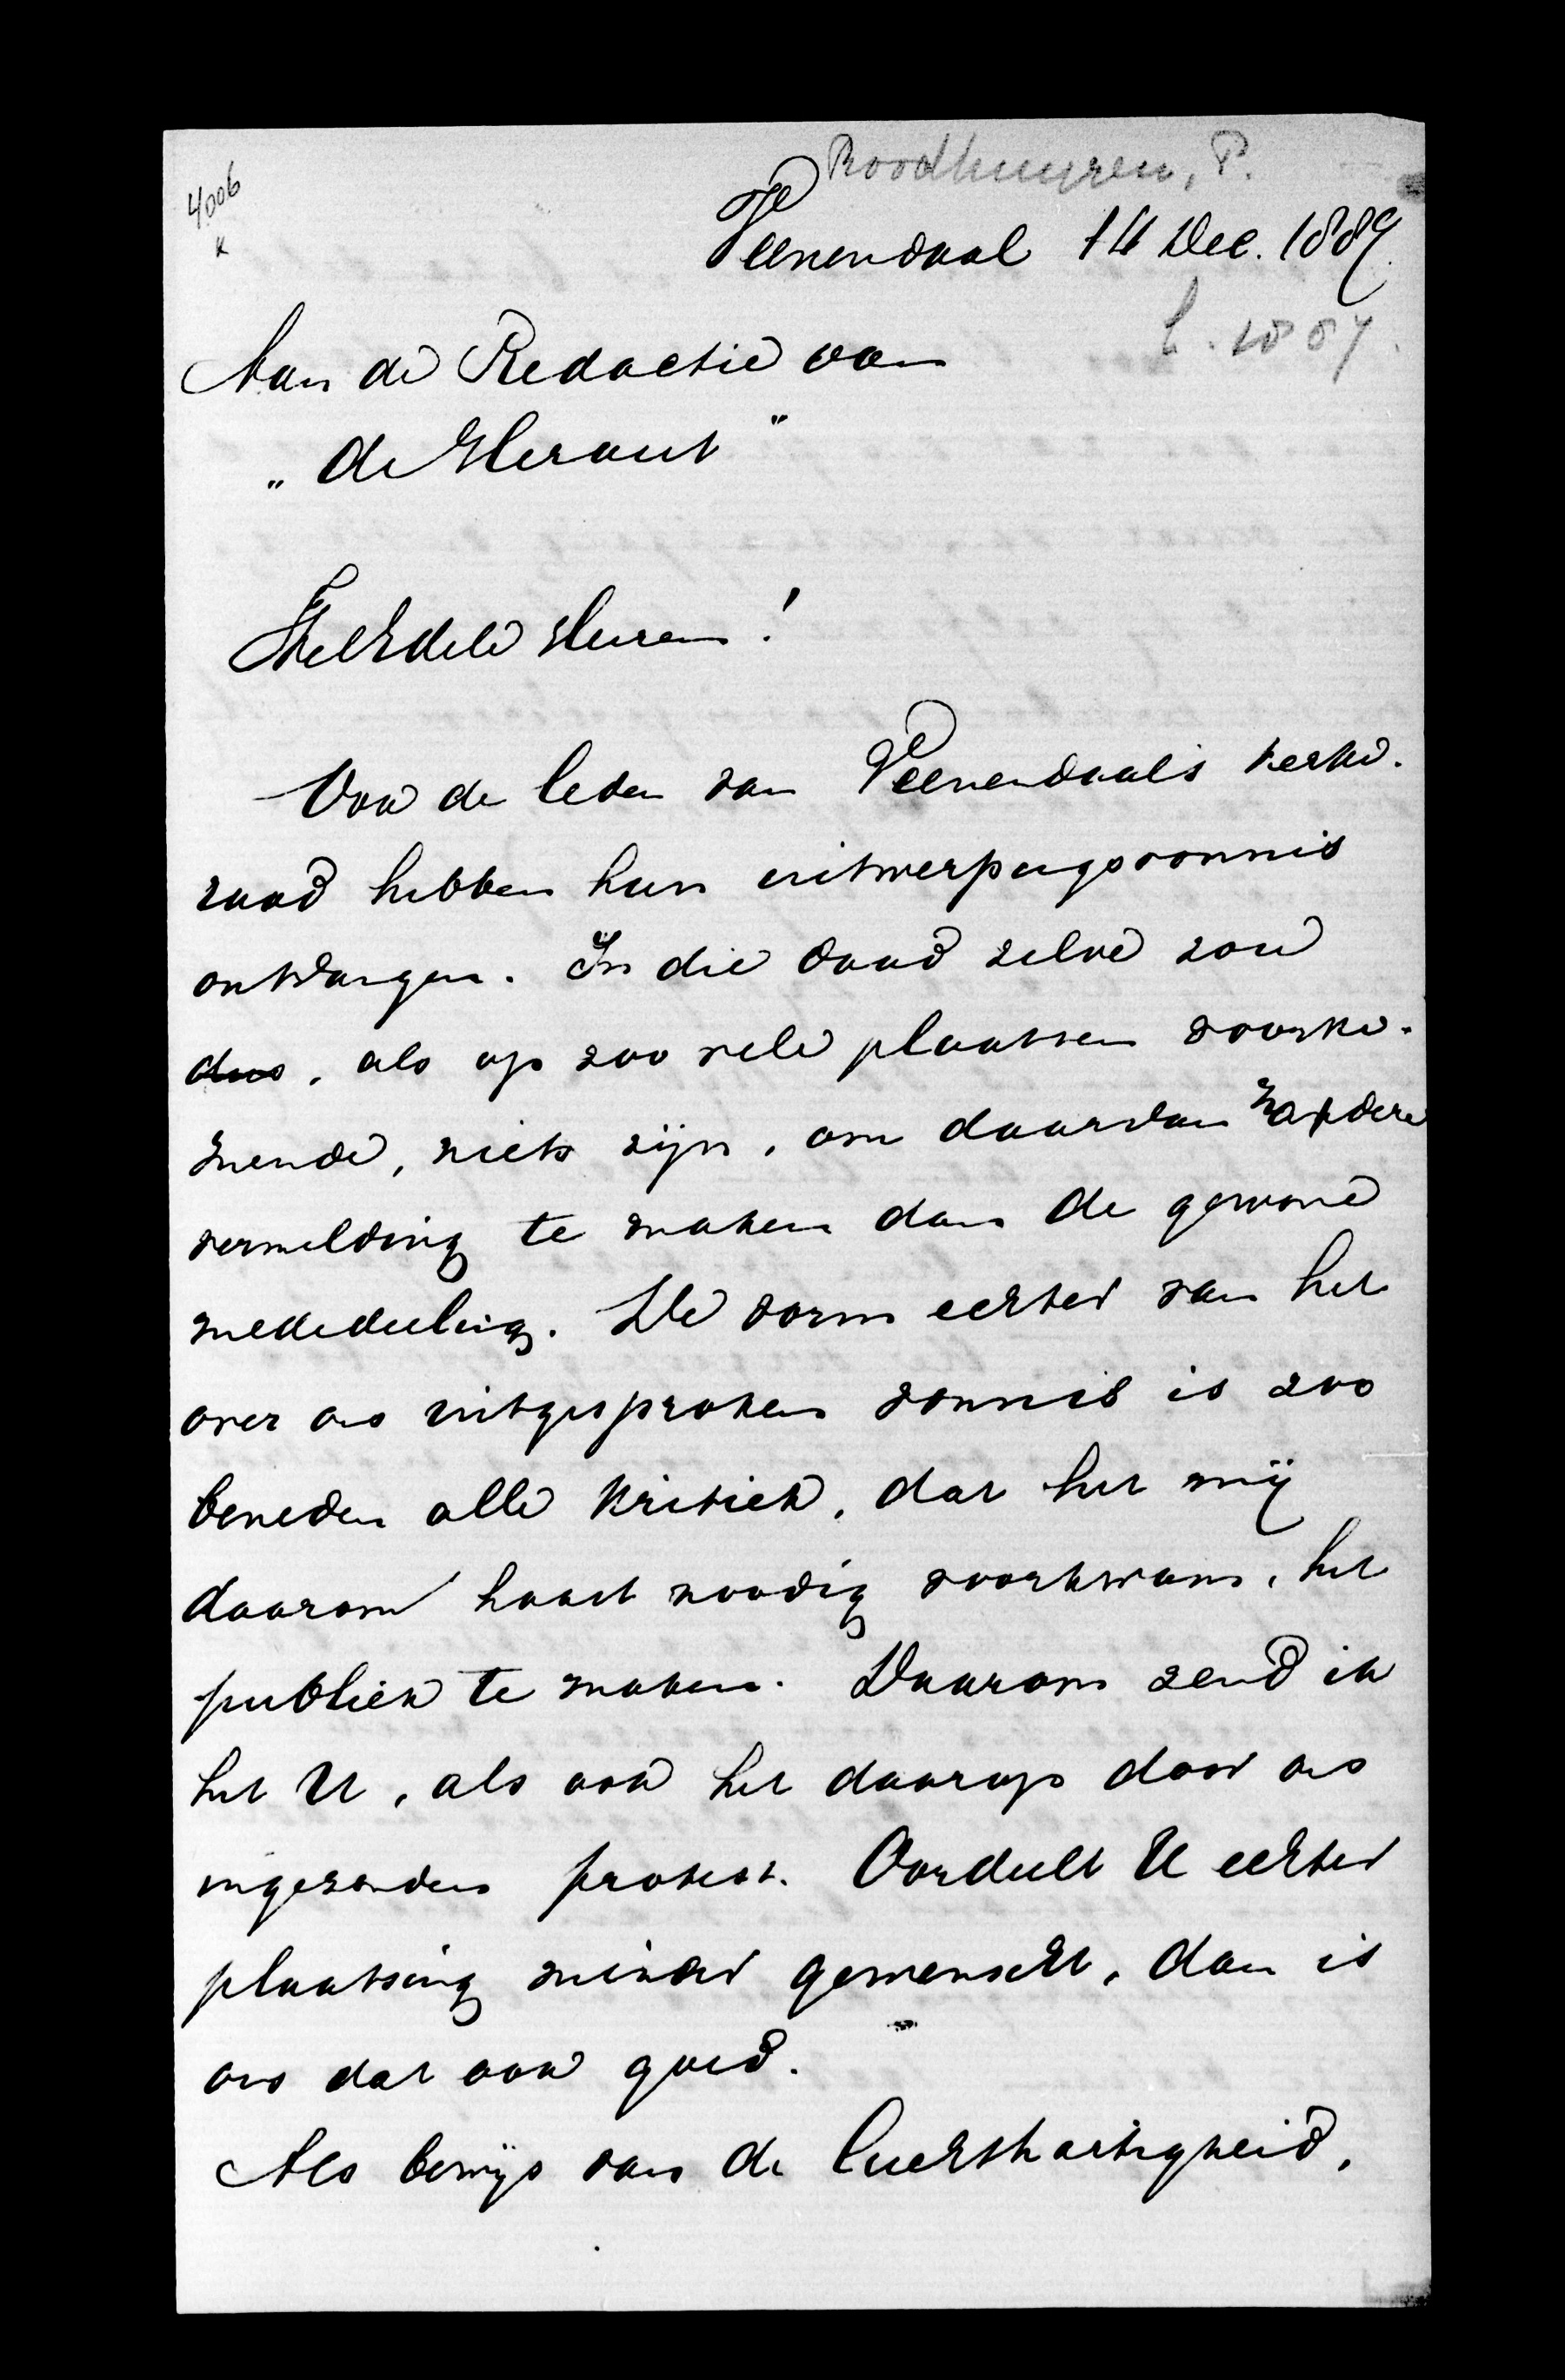 4006
K
Roodhuyzen, P.
Veenendaal 14 Dec. 1889.
Aan de Redactie van
„de Heraut"
WelEdele Heeren!
Ook de leden van Veenendaals kerke-
raad hebben hun uitwerpingsvonnis
ontvangen. In die daad zelve zou
dus, als op zoo vele plaatsen voorko-
mende, niets zijn, om daarvan andere
vermelding te maken dan de gewone
mededeeling. De vorm echter van het
over ons uitgesproken vonnis is zoo
beneden alle kritiek, dat het mij
daarom haast noodig voorkwam, het
publiek te maken. Daarom zend ik
het U, als ook het daarop door ons
ingezonden protest. Oordeelt U echter
plaatsing minder gewenscht, dan is
ons dat ook goed.
Als bewijs van de luchthartigheid,